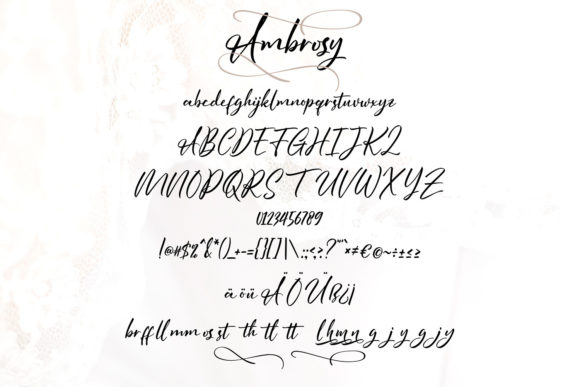 Ambrosy
abcdefghijklmnopqrstuvwxyz
ABCDEFGHIJKL
MNOPQRSTUVWXYZ
0123456789
!@#$%^&*()_+-={}[]|\:;<,>.?
ä ö ü Ä Ö Ü
br ff ll mm os st th tl tt l h m n g j y g j y